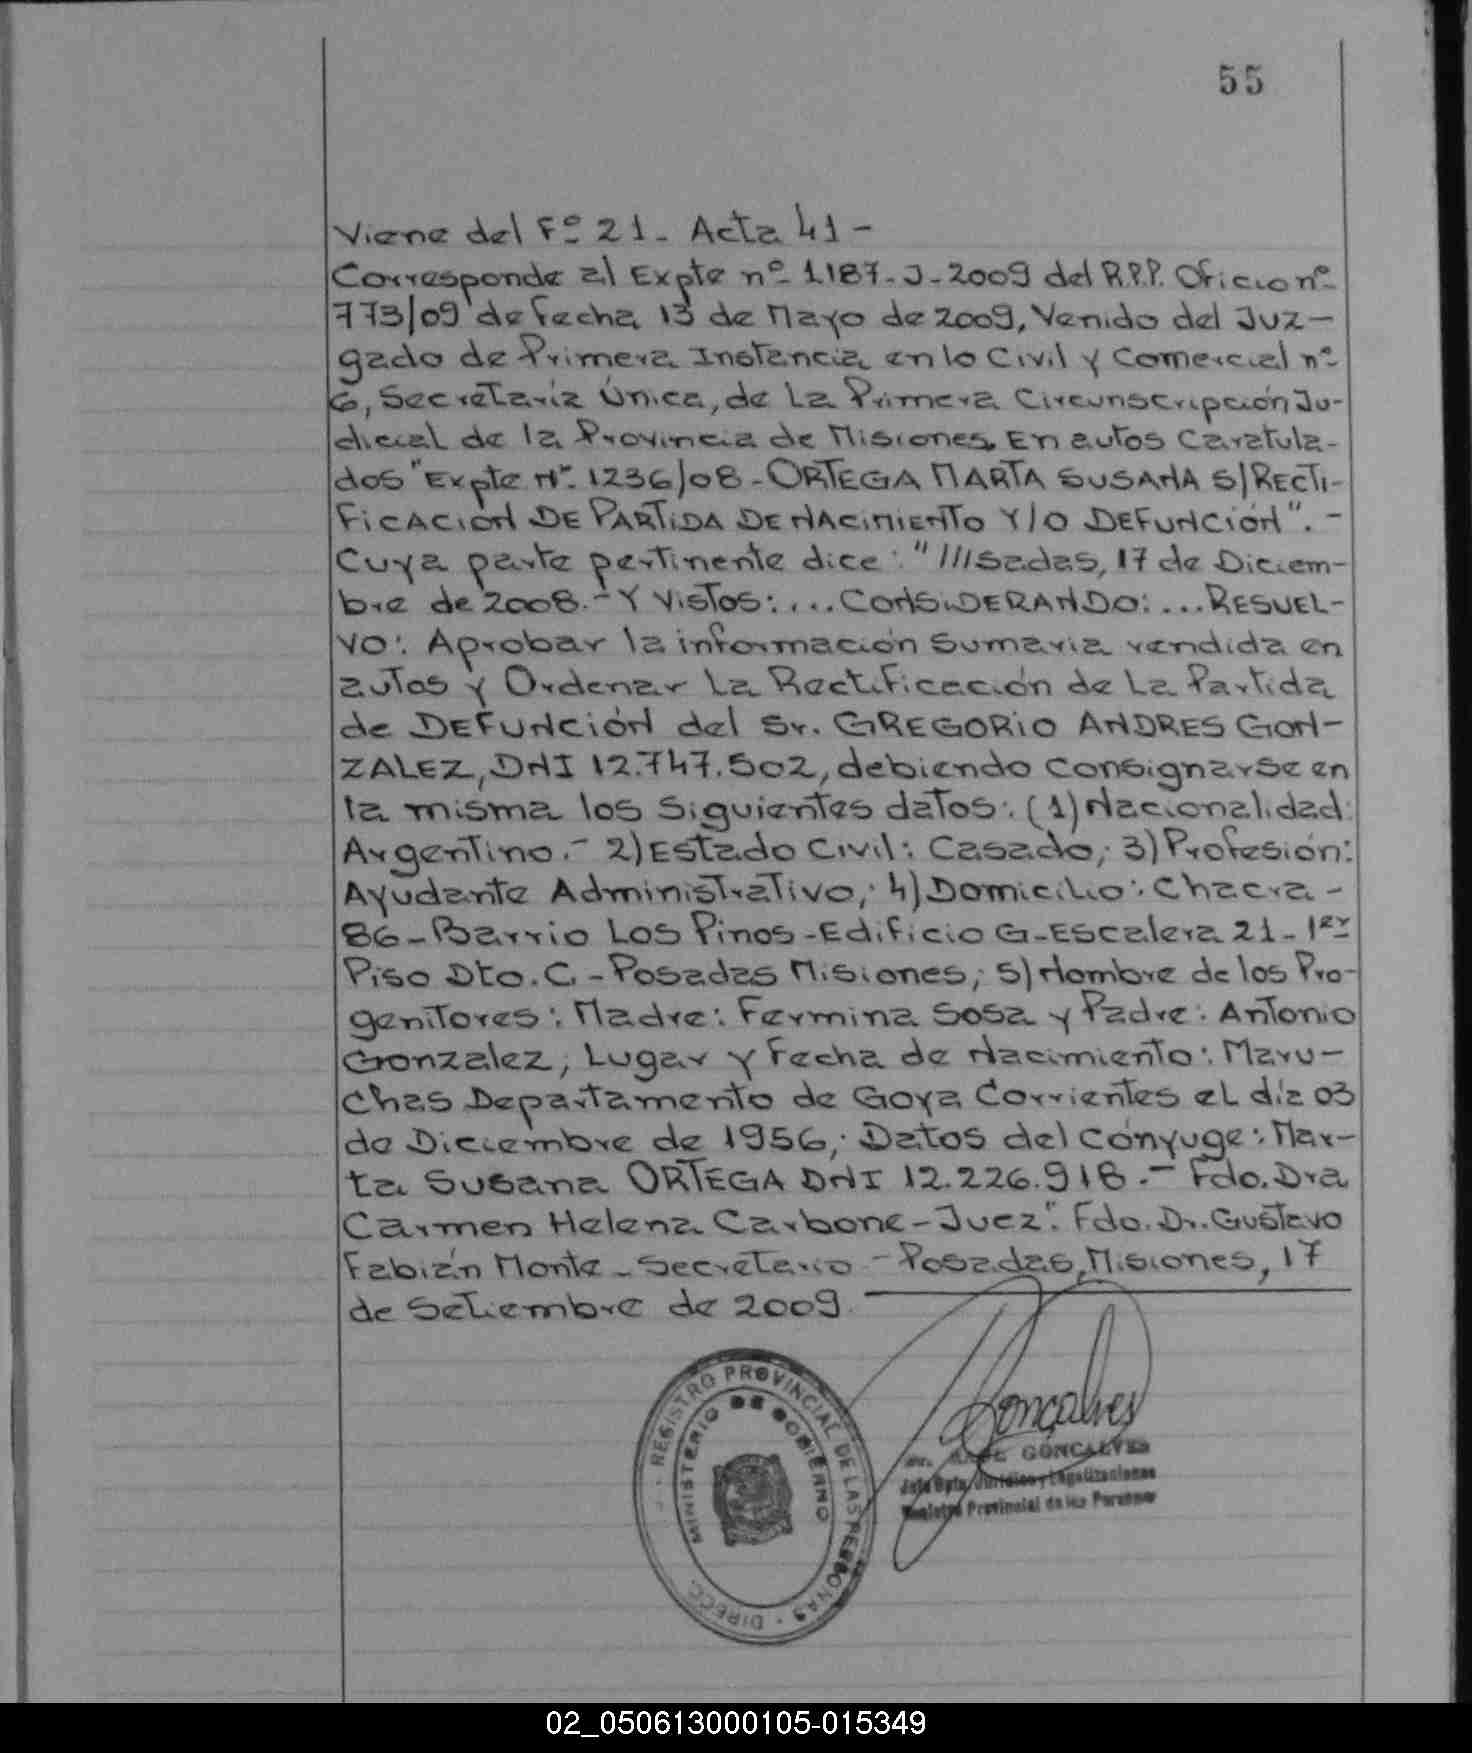 55
Viene del Fº 21 - Acta 41 -
Corresponde al Expte nº 1187-J-2009 del R.P.P. Oficio nº
773/09 de fecha 13 de Mayo de 2009, Venido del Juz-
gado de Primera Instancia en lo Civil y Comercial nº
6, Secretaría Única, de La Primera Circunscripción Ju-
dicial de la Provincia de Misiones, En autos Caratula-
dos "Expte Nº 1236/08 - ORTEGA MARTA SUSANA S/RECTI-
FICACION DE PARTIDA DE NACIMIENTO Y/O DEFUNCIÓN". -
Cuya parte pertinente dice: "///sadas, 17 de Diciem-
bre de 2008.- Y Vistos: ... CONSIDERANDO: ... RESUEL-
VO: Aprobar la información Sumaria rendida en
autos y Ordenar La Rectificación de La Partida
de DEFUNCIÓN del Sr. GREGORIO ANDRES GON-
ZALEZ, DNI 12.747.502, debiendo consignarse en
la misma los siguientes datos: (1) Nacionalidad:
Argentino.- 2) Estado Civil: Casado; 3) Profesión:
Ayudante Administrativo; 4) Domicilio: Chacra -
86 - Barrio Los Pinos - Edificio G - Escalera 21 - 1er
Piso Dto. C. - Posadas Misiones; 5) Nombre de los Pro-
genitores: Madre: Fermina Sosa y Padre: Antonio
Gonzalez; Lugar y Fecha de Nacimiento: Maru-
chas Departamento de Goya Corrientes el día 03
de Diciembre de 1956; Datos del conyuge: Mar-
ta Susana ORTEGA DNI 12.226.918.- Fdo. Dra
Carmen Helena Carbone - Juez". Fdo. Dr. Gustavo
Fabián Monte - Secretario - Posadas, Misiones, 17
de Setiembre de 2009.
REGISTRO PROVINCIAL DE LAS PERSONAS - DIRECC.
MINISTERIO DE GOBIERNO
Gonçalves
GONCALVES
Jefe Dpto. Jurídico y Legalizaciones
Registro Provincial de las Personas
02_050613000105-015349